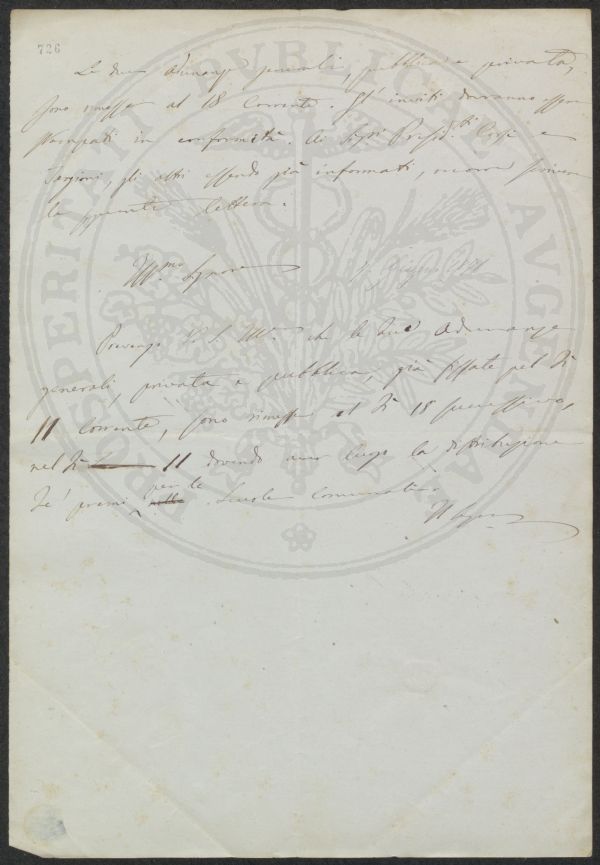 726
Le due Adunanze generali, pubblica e privata,
sono rimesse al 18 Corrente. Gl' inviti dovranno esser
stampati in conformità. Ai Sigri Presid.ti Corsi e
gli altri essendo già informati, occorre scrivere
la seguente lettera.
Ill.mo Signore
Giugno
Prevengo V. S. Ill.ma che le due Adunanze
generali, privata e pubblica, già fissate pel dì
11 Corrente, sono rimesse al dì 18 successivo,
nel dì 11 dovendo aver luogo la distribuzione
de' premi per le Scuole Comunative.
Il
PROSPERITATI PVBLICAE AVGENDAE